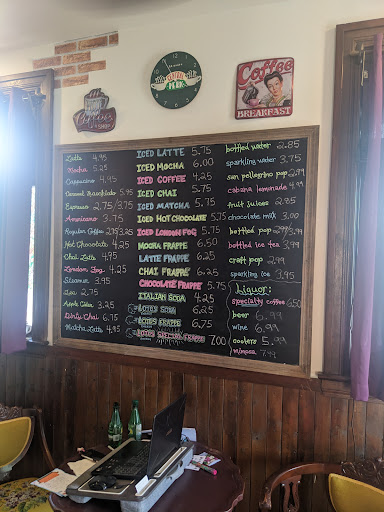 CENTRAL PERK
Coffee
BREAKFAST
Latte 4.95
Mocha 5.25
Cappuccino 4.95
Caramel Macchiato 5.95
Espresso 2.75/3.75
Americano 3.75
Regular Coffee
Hot Chocolate 4.25
Chai Latte 4.95
London Fog 4.25
Steamer 3.95
Tea 2.75
Apple Cider 3.25
Dirty Chai 6.75
Matcha Latte 4.95
ICED LATTE 5.75
ICED MOCHA 6.00
ICED COFFEE 4.25
ICED CHAI 5.75
ICED MATCHA 5.75
ICED HOT CHOCOLATE 5.75
ICED LONDON FOG 5.75
MOCHA FRAPPE 6.50
LATTE FRAPPE 6.25
CHAI FRAPPE 6.25
CHOCOLATE FRAPPE 5.75
ITALIAN SODA 4.25
LOTUS SODA 6.25
LOTUS FRAPPE 6.75
LOTUS SPECIAL FRAPPE 7.00
bottled water 2.85
sparkling water 3.75
san pellegrino pop 2.99
cabana lemonade 4.99
fruit juices 2.85
chocolate milk 3.00
bottled pop 2.99/3.99
bottled iced tea 3.99
craft pop 2.99
sparkling ice 3.95
Liquor:
specialty coffee 6.50
beer 6.99
wine 6.99
coolers 5.99
mimosa 7.99